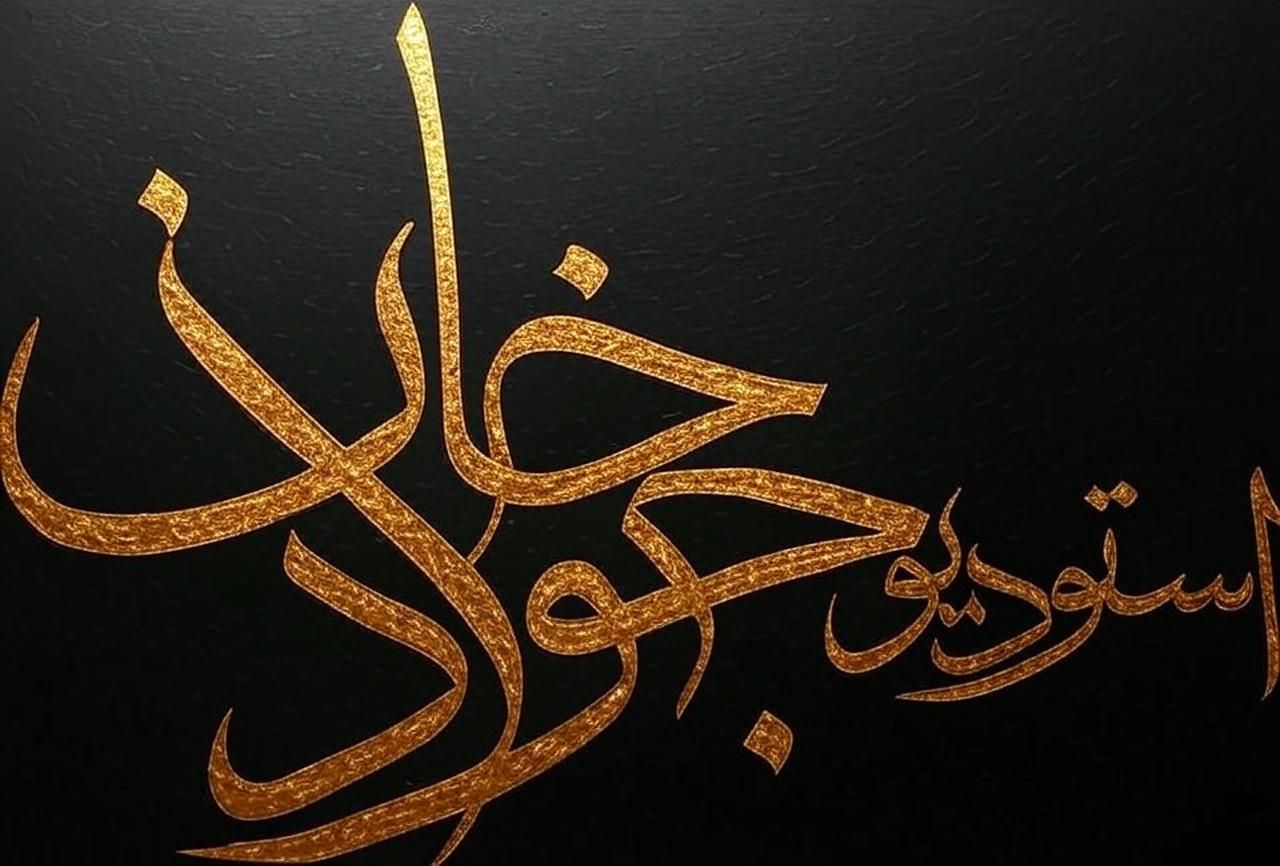 استودیو جواد خان